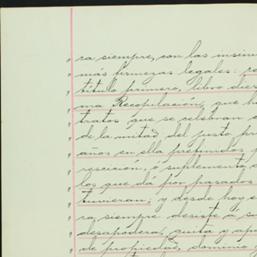 „ ra siempre, con las
„ más firmezas legales:
„ título primero, libro
„ ma Recopilación, que
„ tratos que se celebran
„ de la mitad del justo
„ años en ella prefinidos
„ rescisión, ó suplemento
„ los que dá por pasados
„ tuvieran; y desde hoy
„ ra siempre desiste
„ desapodera, quita y
„ de propiedad, dominio